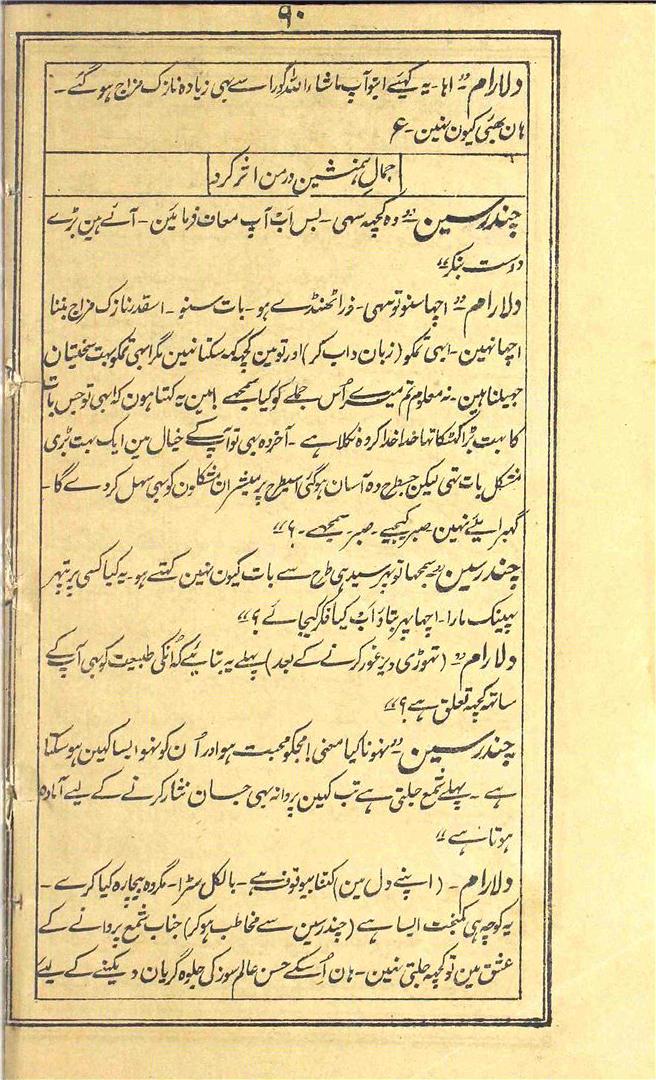 ۹۰
دلارام ” اہا۔ یہ کہئے ابتو آپ ماشاءاللہ گورا سے بھی زیادہ نازک مزاج ہو گئے۔
ہان بھئی کیون نہین۔ ع
جمالِ ہمنشین درمن اثر کرد
چندرسین ” وہ کچھہ سہی۔ بس اَب آپ معاف فرمائین۔ آئے ہین بڑے
دوست بنکر“
دلارام ” اچھا سنو تو سہی۔ ذرا ٹھنڈے ہو۔ بات سنو۔ اسقدر نازک مزاج بننا
اچھا نہین۔ ابھی تمکو (زبان داب کر) اور تو مین کچھہ کہہ سکتا نہین مگر ابھی تمکو بہت سختیان
جھیلنا ہین۔ نہ معلوم تم میرے اُس جملے کو کیا سمجھے ہا مین یہ کہتا ہون کہ ابھی تو جس بات
کا بہت بڑا کھٹکا تھا خدا خدا کر وہ نکلا ہے۔ آخر وہ بھی تو آپ کے خیال مین ایک بہت بڑی
مشکل بات تھی لیکن جسطرح وہ آسان ہو گئی اسیطرح پرمیشر ان مشکلون کو بھی سہل کر دے گا۔
گھبرایئے نہین صبر کیجیے۔ صبر۔ سمجھے۔ ؟“
چندرسین ” سمجھا تو پھر سیدہی طرح سے بات کیون نہین کہتے ہو۔ یہ کیا کسی پر پتھر
پھینک مارا۔ اچھا پھر بتاؤ اَب کیا فکر کیجائے ؟“
دلارام ” (تھوڑی دیر غور کرنے کے بعد) پہلے یہ بتائیے کہ اُنکی طبیعت کو بھی آپ کے
ساتھہ کچھہ تعلق ہے ؟“
چندرسین ” نہونا کیا معنی! مجکو محبت ہو اور اُن کو نہو ایسا کہین ہو سکتا
ہے۔ پہلے شمع جلتی ہے تب کہین پروانہ بھی جان نثار کرنے کے لیے آمادہ
ہوتا ہے “
دلارام۔ (اپنے دل مین) کتنا بیوقوف ہے۔ بالکل سٹرا۔ مگر وہ بیچارہ کیا کرے۔
یہ کوچہ ہی کمبخت ایسا ہے (چندرسین سے مخاطب ہو کر) جناب شمع پروانے کے
عشق مین تو کچھہ جلتی نہین۔ ہان اُسکے حسن عالم سوز کی جلوہ گریان دیکھنے کے لیے